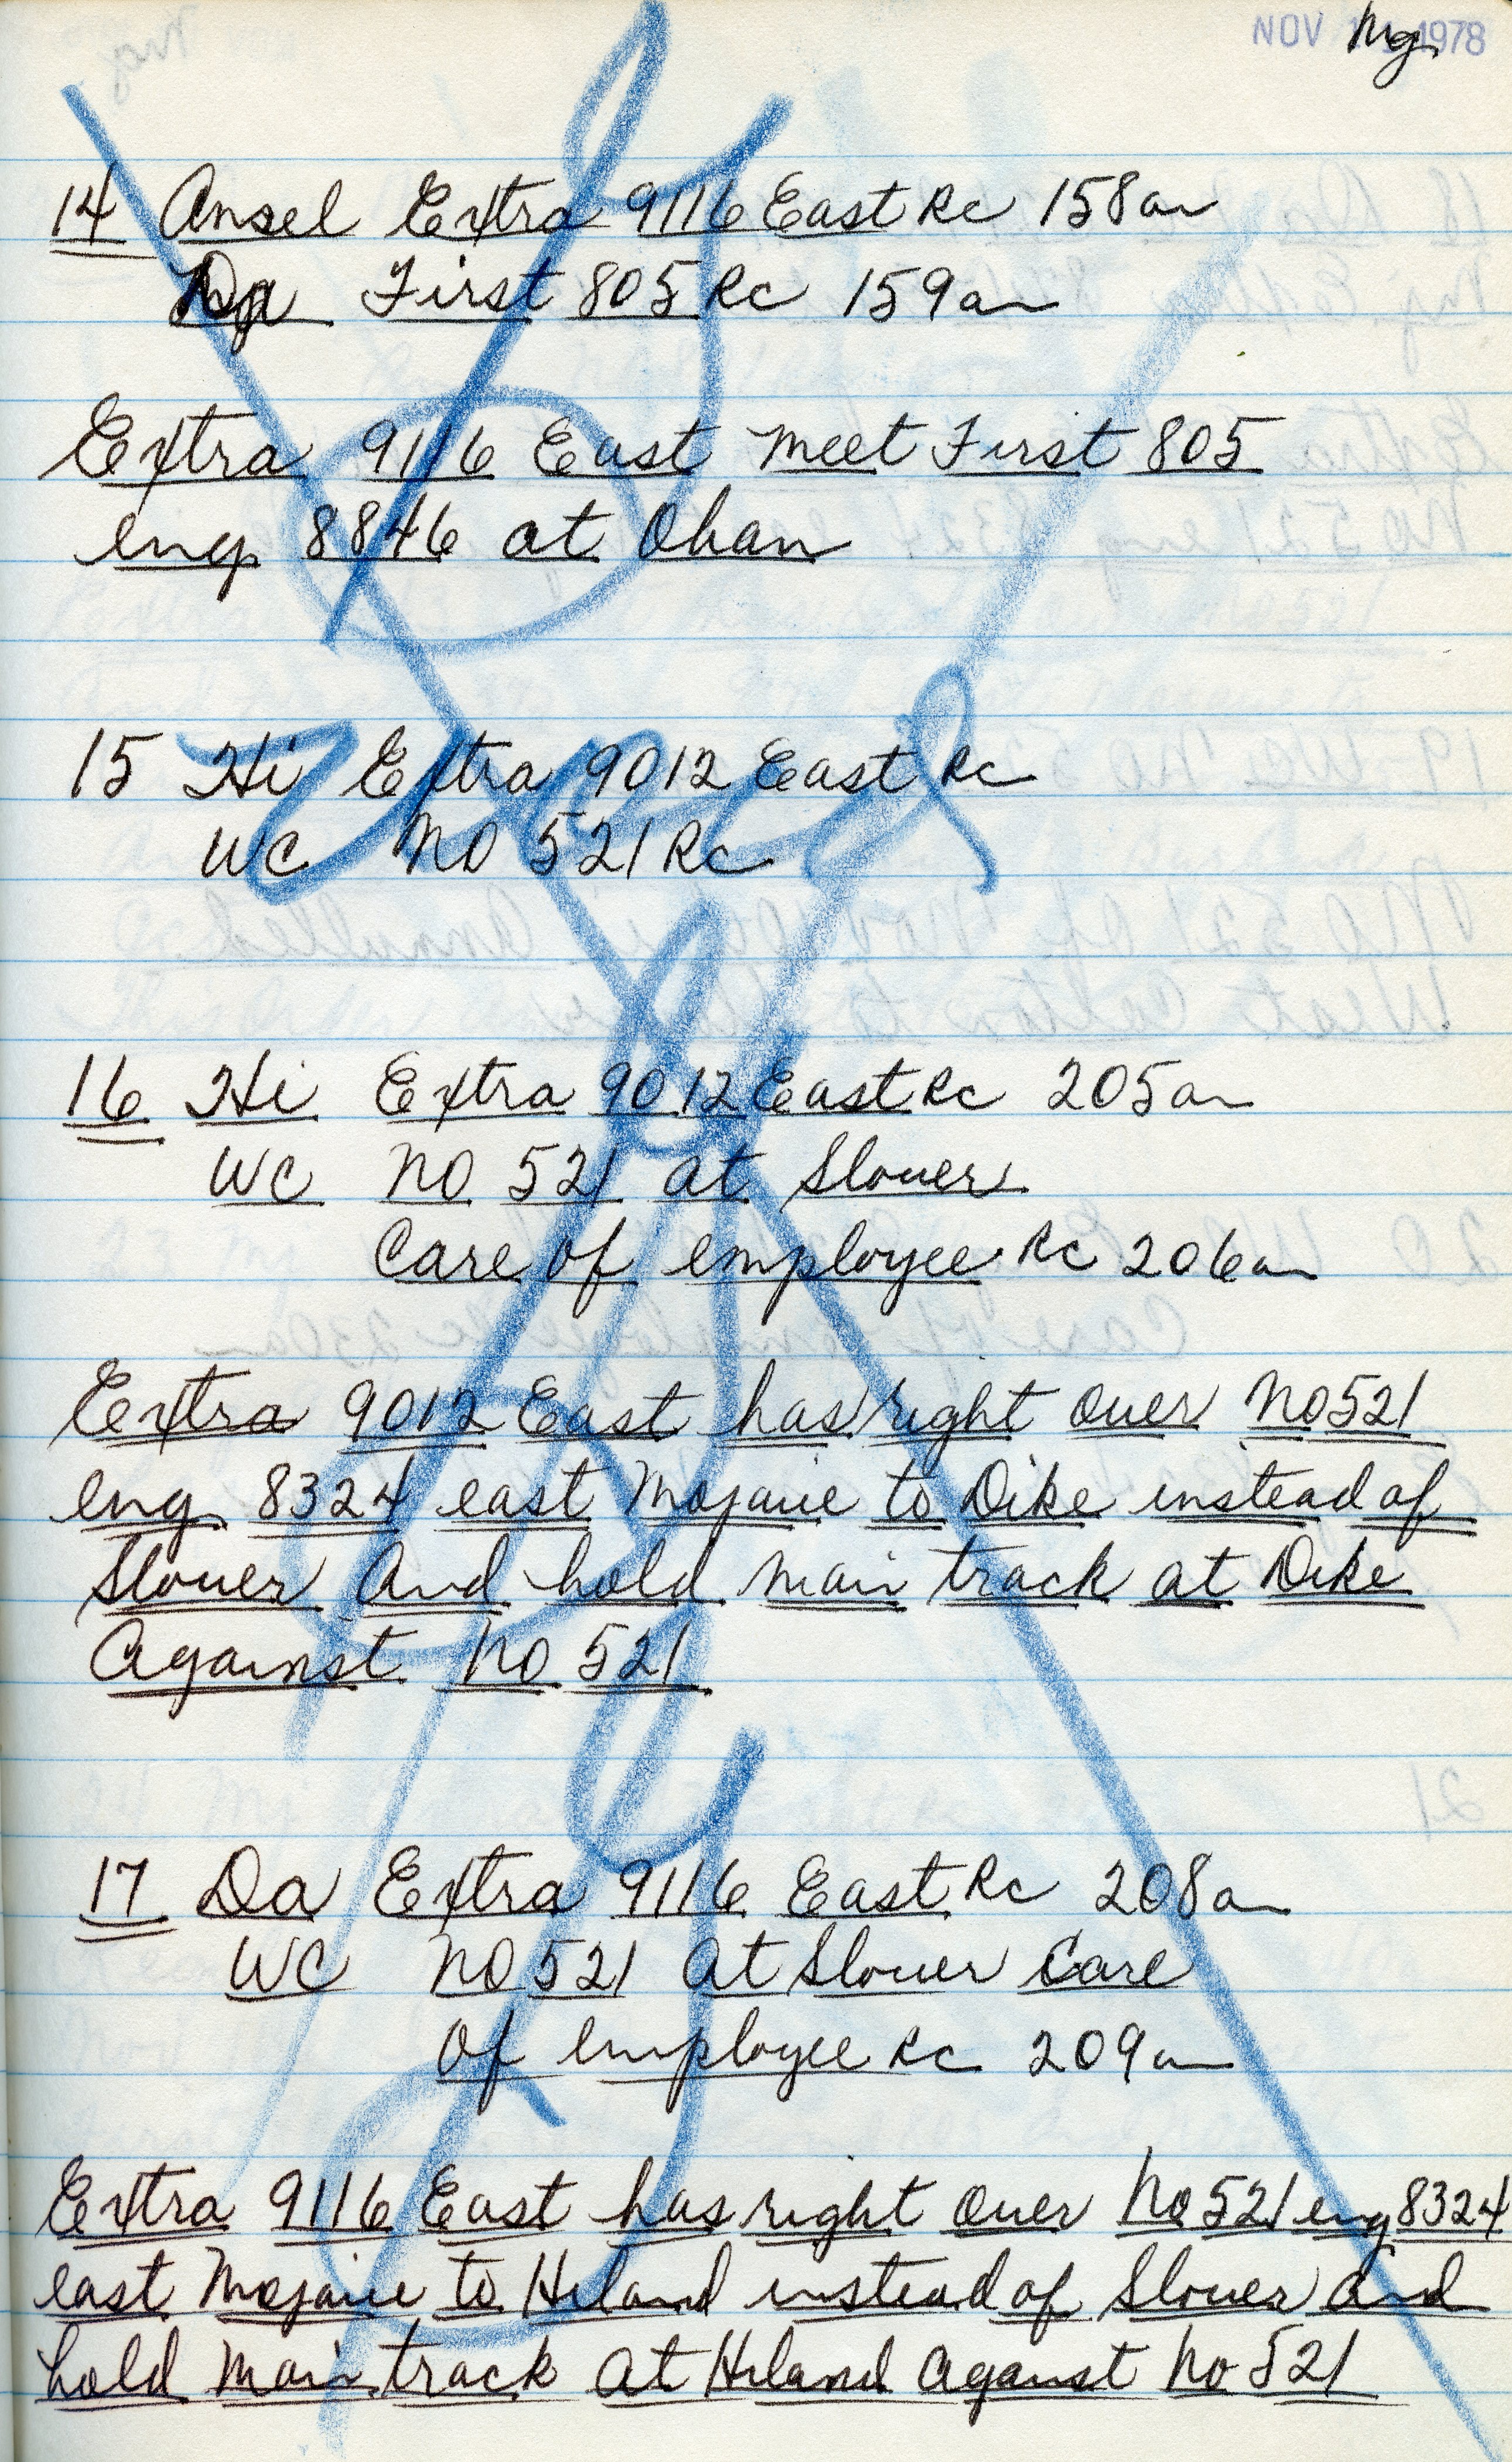 NOV 1978 Mg
14 Ansel Extra 9116 East Rc 158am
Da First 805 Rc 159am
Extra 9116 East meet First 805
eng 8846 at Oban
15 Hi Extra 9012 East Rc
WC No 521 Rc
16 Hi Extra 9012 East Rc 205am
WC No 521 at Slover
Care of employee Rc 206am
Extra 9012 East has right over No 521
eng 8324 east Mojave to Dike instead of
Slover and hold main track at Dike
Against No 521
17 Da Extra 9116 East Rc 208am
WC No 521 at Slover Care
of employee Rc 209am
Extra 9116 East has right over No 521 eng 8324
east Mojave to Hiland instead of Slover and
hold main track at Hiland against No 521